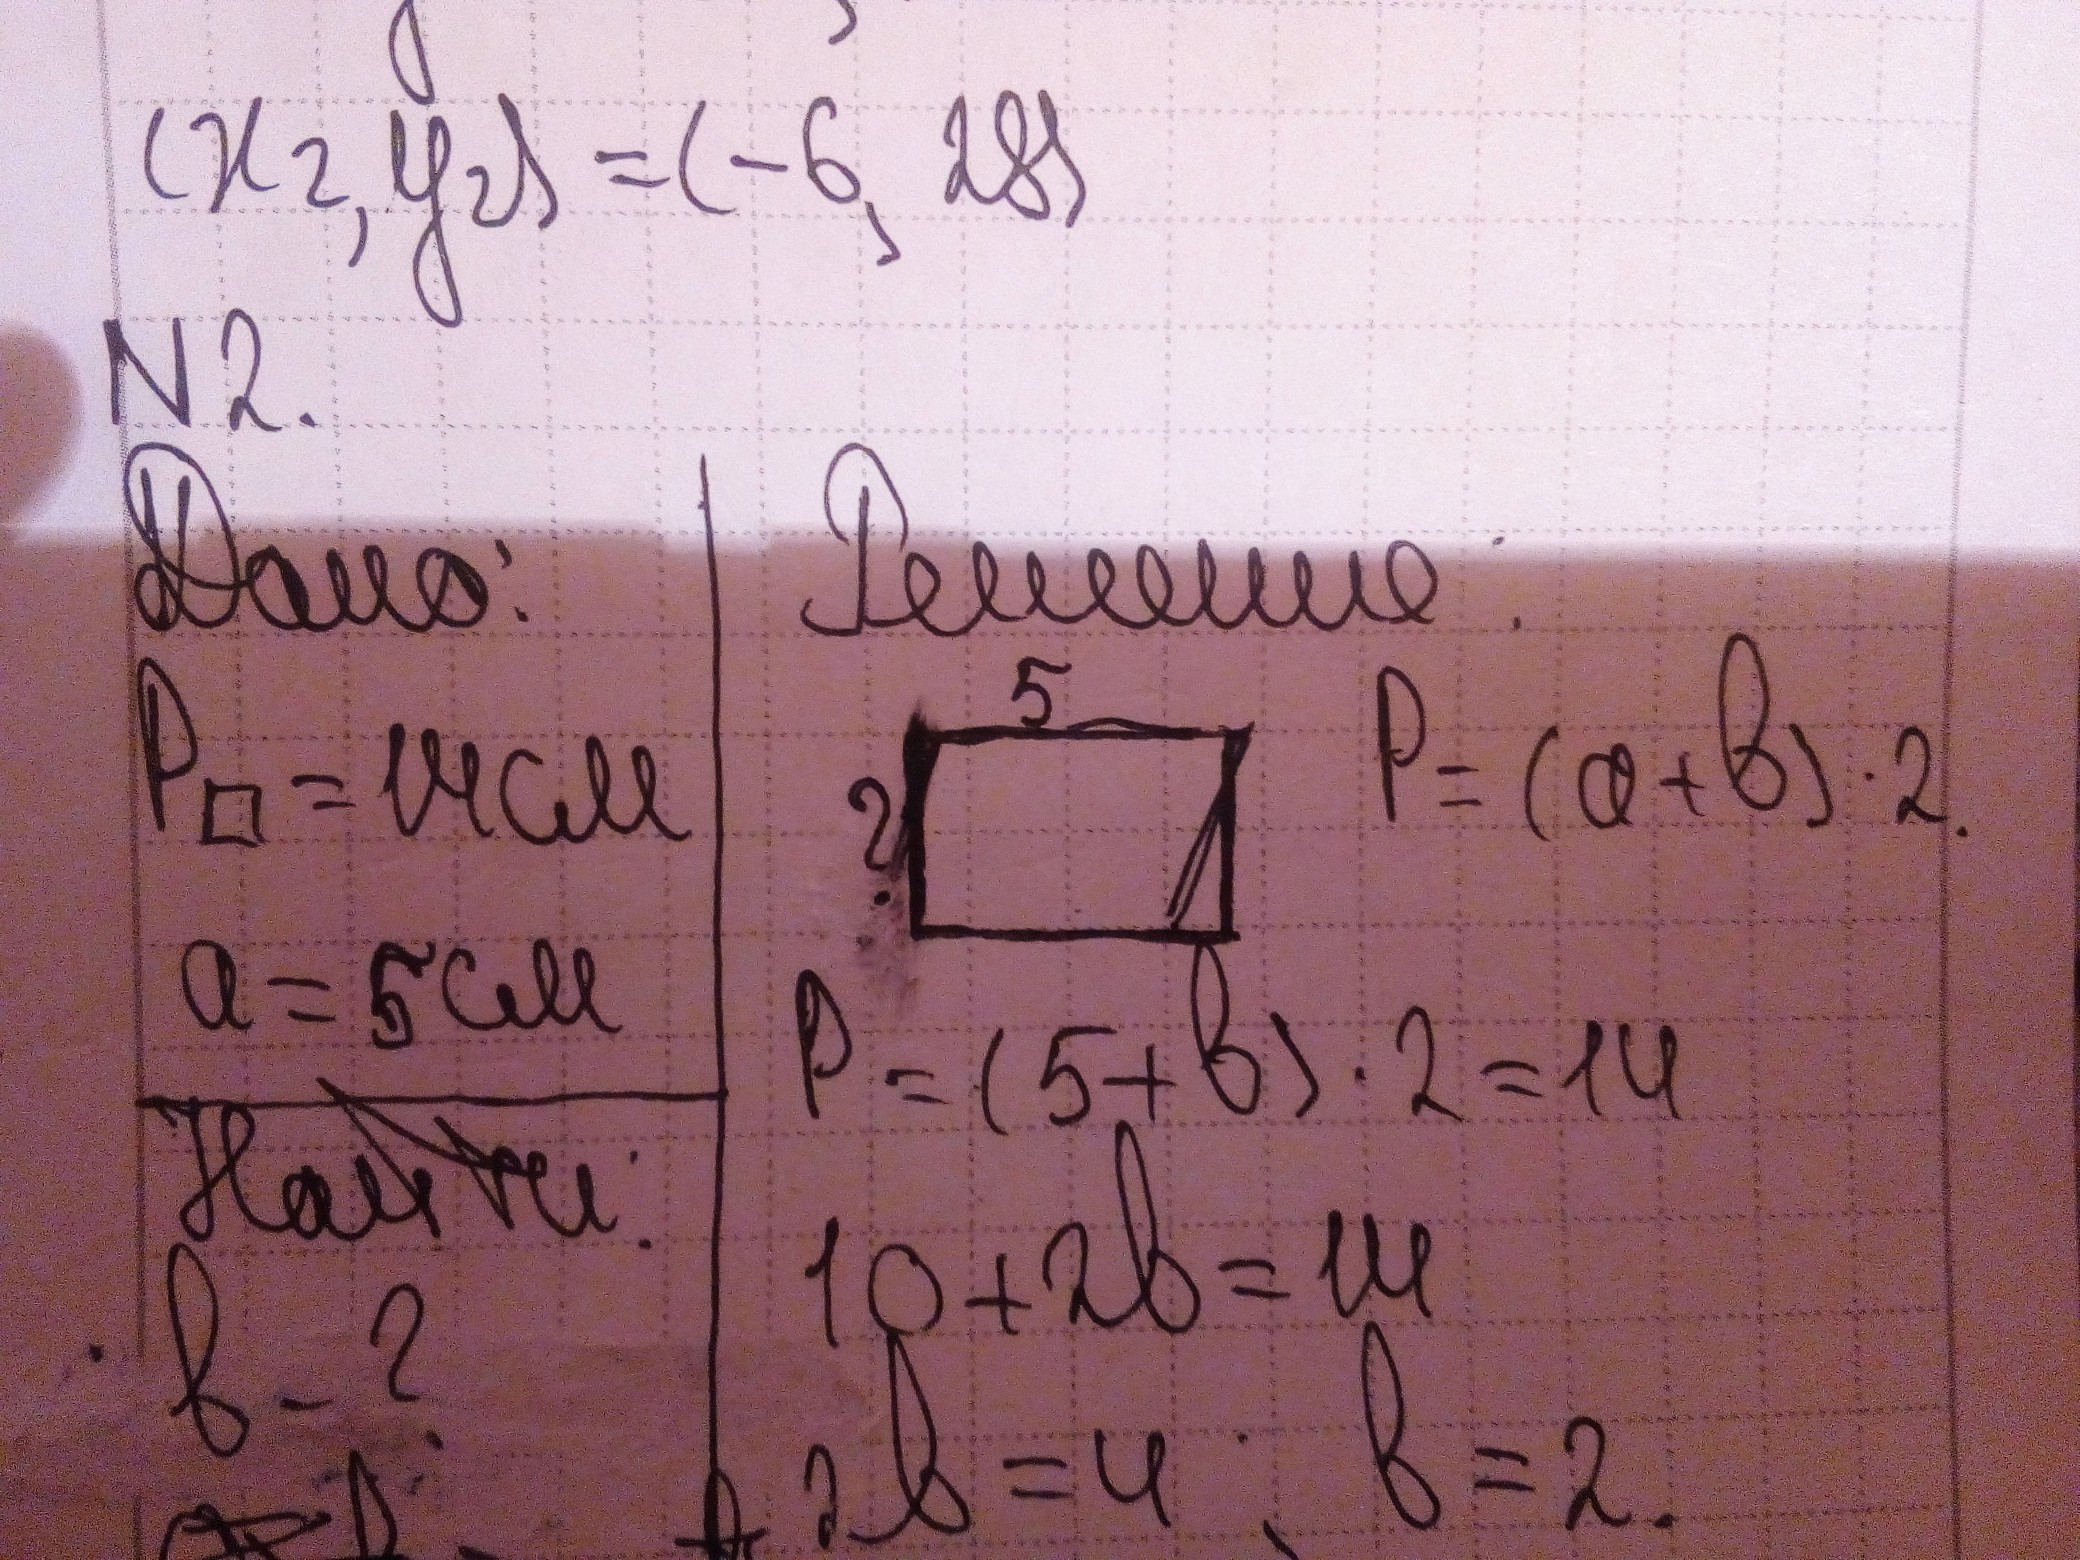 (x₂, y₂) = (-6, 28)
N2.
Дано:
P□ = 14см
a = 5см
Найти:
b - ?
Решение:
5
?
P = (a+b)·2.
P = (5+b)·2 = 14
10+2b = 14
2b = 4; b = 2.